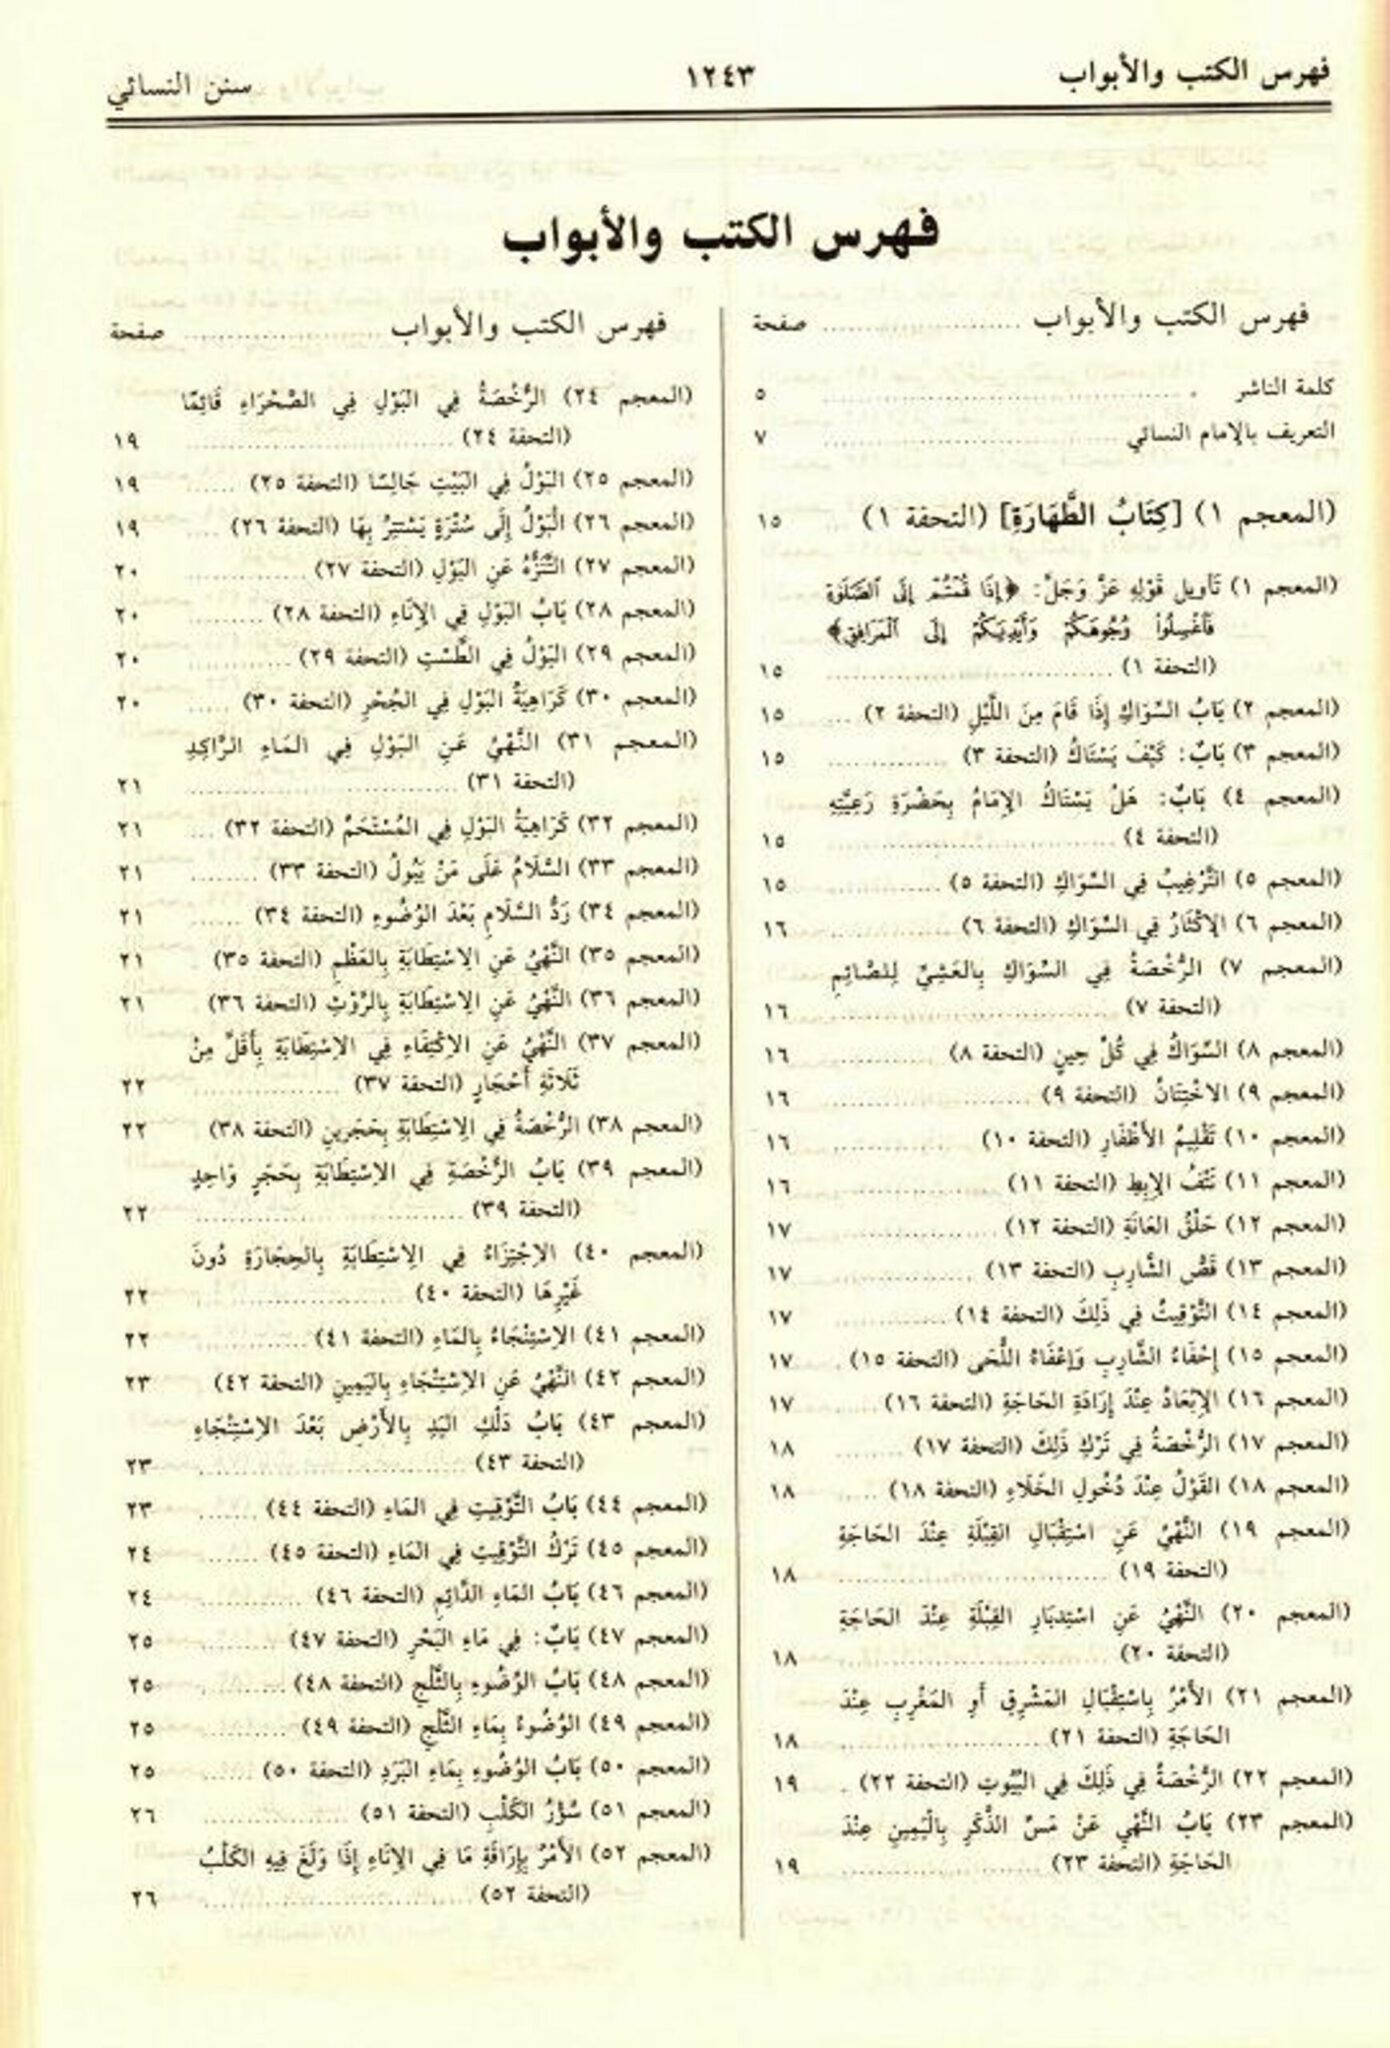 فهرس الكتب والأبواب ١٢٤٣ سنن النسائي
فهرس الكتب والأبواب
فهرس الكتب والأبواب ..................... صفحة
كلمة الناشر ..................... ٥
التعريف بالإمام النسائي ..................... ٧
(المعجم ١) [كِتَابُ الطَّهَارَةِ] (التحفة ١) ... ١٥
(المعجم ١) تَأويل قَوْلِهِ عَزَّ وَجَلَّ: ﴿إِذَا قُمْتُمْ إِلَى ٱلصَّلَوٰةِ
فَٱغْسِلُوا۟ وُجُوهَكُمْ وَأَيْدِيَكُمْ إِلَى ٱلْمَرَافِقِ﴾
(التحفة ١) ..................... ١٥
(المعجم ٢) بَابُ السِّوَاكِ إِذَا قَامَ مِنَ اللَّيْلِ (التحفة ٢) ... ١٥
(المعجم ٣) بَابٌ: كَيْفَ يَسْتَاكُ (التحفة ٣) ............ ١٥
(المعجم ٤) بَابٌ: هَلْ يَسْتَاكُ الإِمَامُ بِحَضْرَةِ رَعِيَّتِهِ
(التحفة ٤) ..................... ١٥
(المعجم ٥) التَّرْغِيبُ فِي السِّوَاكِ (التحفة ٥) ............ ١٥
(المعجم ٦) الإِكْثَارُ فِي السِّوَاكِ (التحفة ٦) ............ ١٦
(المعجم ٧) الرُّخْصَةُ فِي السِّوَاكِ بِالعَشِيِّ لِلصَّائِمِ
(التحفة ٧) ..................... ١٦
(المعجم ٨) السِّوَاكُ فِي كُلِّ حِينٍ (التحفة ٨) ............ ١٦
(المعجم ٩) الاخْتِتَانُ (التحفة ٩) ..................... ١٦
(المعجم ١٠) تَقْلِيمُ الأَظْفَارِ (التحفة ١٠) ............ ١٦
(المعجم ١١) نَتْفُ الإِبِطِ (التحفة ١١) ............ ١٦
(المعجم ١٢) حَلْقُ العَانَةِ (التحفة ١٢) ............ ١٧
(المعجم ١٣) قَصُّ الشَّارِبِ (التحفة ١٣) ............ ١٧
(المعجم ١٤) التَّوْقِيتُ فِي ذَلِكَ (التحفة ١٤) ............ ١٧
(المعجم ١٥) إِحْفَاءُ الشَّارِبِ وَإِعْفَاءُ اللُّحَى (التحفة ١٥) . ١٧
(المعجم ١٦) الإِبْعَادُ عِنْدَ إِرَادَةِ الحَاجَةِ (التحفة ١٦) ..... ١٧
(المعجم ١٧) الرُّخْصَةُ فِي تَرْكِ ذَلِكَ (التحفة ١٧) ........ ١٨
(المعجم ١٨) القَوْلُ عِنْدَ دُخُولِ الخَلَاءِ (التحفة ١٨) ..... ١٨
(المعجم ١٩) النَّهْيُ عَنِ اسْتِقْبَالِ القِبْلَةِ عِنْدَ الحَاجَةِ
(التحفة ١٩) ..................... ١٨
(المعجم ٢٠) النَّهْيُ عَنِ اسْتِدْبَارِ القِبْلَةِ عِنْدَ الحَاجَةِ
(التحفة ٢٠) ..................... ١٨
(المعجم ٢١) الأَمْرُ بِاسْتِقْبَالِ المَشْرِقِ أَوِ المَغْرِبِ عِنْدَ
الحَاجَةِ (التحفة ٢١) ..................... ١٨
(المعجم ٢٢) الرُّخْصَةُ فِي ذَلِكَ فِي البُيُوتِ (التحفة ٢٢) . ١٩
(المعجم ٢٣) بَابُ النَّهْيِ عَنْ مَسِّ الذَّكَرِ بِالْيَمِينِ عِنْدَ
الحَاجَةِ (التحفة ٢٣) ..................... ١٩
فهرس الكتب والأبواب ..................... صفحة
(المعجم ٢٤) الرُّخْصَةُ فِي البَوْلِ فِي الصَّحْرَاءِ قَائِمًا
(التحفة ٢٤) ..................... ١٩
(المعجم ٢٥) البَوْلُ فِي البَيْتِ جَالِسًا (التحفة ٢٥) ...... ١٩
(المعجم ٢٦) الْبَوْلُ إِلَى سُتْرَةٍ يَسْتَتِرُ بِهَا (التحفة ٢٦) .... ١٩
(المعجم ٢٧) التَّنَزُّهُ عَنِ البَوْلِ (التحفة ٢٧) ............ ٢٠
(المعجم ٢٨) بَابُ البَوْلِ فِي الإِنَاءِ (التحفة ٢٨) ......... ٢٠
(المعجم ٢٩) البَوْلُ فِي الطَّسْتِ (التحفة ٢٩) ............ ٢٠
(المعجم ٣٠) كَرَاهِيَةُ البَوْلِ فِي الجُحْرِ (التحفة ٣٠) ..... ٢٠
(المعجم ٣١) النَّهْيُ عَنِ البَوْلِ فِي المَاءِ الرَّاكِدِ
(التحفة ٣١) ..................... ٢١
(المعجم ٣٢) كَرَاهِيَةُ البَوْلِ فِي المُسْتَحَمِّ (التحفة ٣٢) ... ٢١
(المعجم ٣٣) السَّلَامُ عَلَى مَنْ يَبُولُ (التحفة ٣٣) ........ ٢١
(المعجم ٣٤) رَدُّ السَّلَامِ بَعْدَ الوُضُوءِ (التحفة ٣٤) ...... ٢١
(المعجم ٣٥) النَّهْيُ عَنِ الاِسْتِطَابَةِ بِالعَظْمِ (التحفة ٣٥) . ٢١
(المعجم ٣٦) النَّهْيُ عَنِ الاِسْتِطَابَةِ بِالرَّوْثِ (التحفة ٣٦) ٢١
(المعجم ٣٧) النَّهْيُ عَنِ الاِكْتِفَاءِ فِي الاِسْتِطَابَةِ بِأَقَلَّ مِنْ
ثَلَاثَةِ أَحْجَارٍ (التحفة ٣٧) ............ ٢٢
(المعجم ٣٨) الرُّخْصَةُ فِي الاِسْتِطَابَةِ بِحَجَرَيْنِ (التحفة ٣٨) ٢٢
(المعجم ٣٩) بَابُ الرُّخْصَةِ فِي الاِسْتِطَابَةِ بِحَجَرٍ وَاحِدٍ
(التحفة ٣٩) ..................... ٢٢
(المعجم ٤٠) الاِجْتِزَاءُ فِي الاِسْتِطَابَةِ بِالحِجَارَةِ دُونَ
غَيْرِهَا (التحفة ٤٠) ..................... ٢٢
(المعجم ٤١) الاِسْتِنْجَاءُ بِالمَاءِ (التحفة ٤١) ............ ٢٢
(المعجم ٤٢) النَّهْيُ عَنِ الاِسْتِنْجَاءِ بِاليَمِينِ (التحفة ٤٢) ٢٣
(المعجم ٤٣) بَابُ دَلْكِ اليَدِ بِالأَرْضِ بَعْدَ الاِسْتِنْجَاءِ
(التحفة ٤٣) ..................... ٢٣
(المعجم ٤٤) بَابُ التَّوْقِيتِ فِي المَاءِ (التحفة ٤٤) ....... ٢٣
(المعجم ٤٥) تَرْكُ التَّوْقِيتِ فِي المَاءِ (التحفة ٤٥) ...... ٢٤
(المعجم ٤٦) بَابُ المَاءِ الدَّائِمِ (التحفة ٤٦) ............ ٢٤
(المعجم ٤٧) بَابٌ: فِي مَاءِ البَحْرِ (التحفة ٤٧) ......... ٢٥
(المعجم ٤٨) بَابُ الوُضُوءِ بِالثَّلْجِ (التحفة ٤٨) ......... ٢٥
(المعجم ٤٩) الوُضُوءُ بِمَاءِ الثَّلْجِ (التحفة ٤٩) ......... ٢٥
(المعجم ٥٠) بَابُ الوُضُوءِ بِمَاءِ البَرَدِ (التحفة ٥٠) ...... ٢٥
(المعجم ٥١) سُؤْرُ الكَلْبِ (التحفة ٥١) ............ ٢٦
(المعجم ٥٢) الأَمْرُ بِإِرَاقَةِ مَا فِي الإِنَاءِ إِذَا وَلَغَ فِيهِ الكَلْبُ
(التحفة ٥٢) ..................... ٢٦